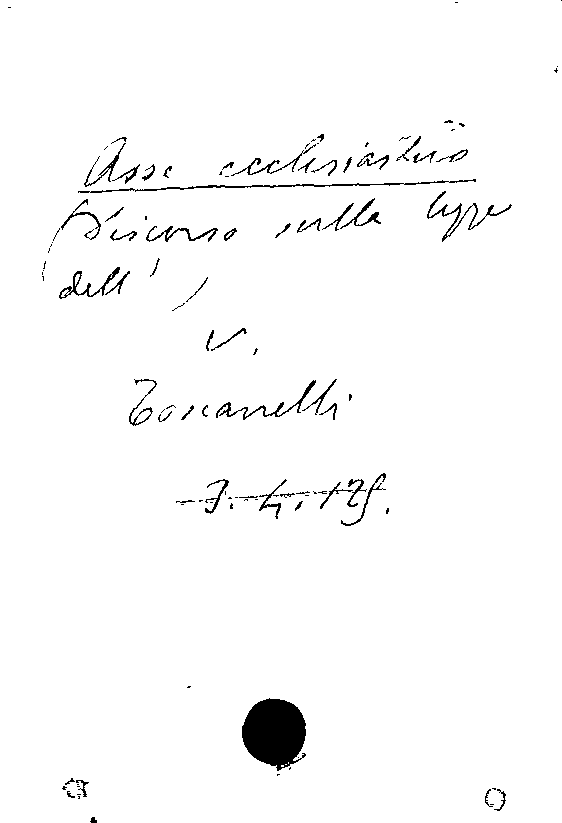 Asse ecclesiastico
(Discorso sulla legge
dell')
V.
Toscanelli
3. 4. 125.